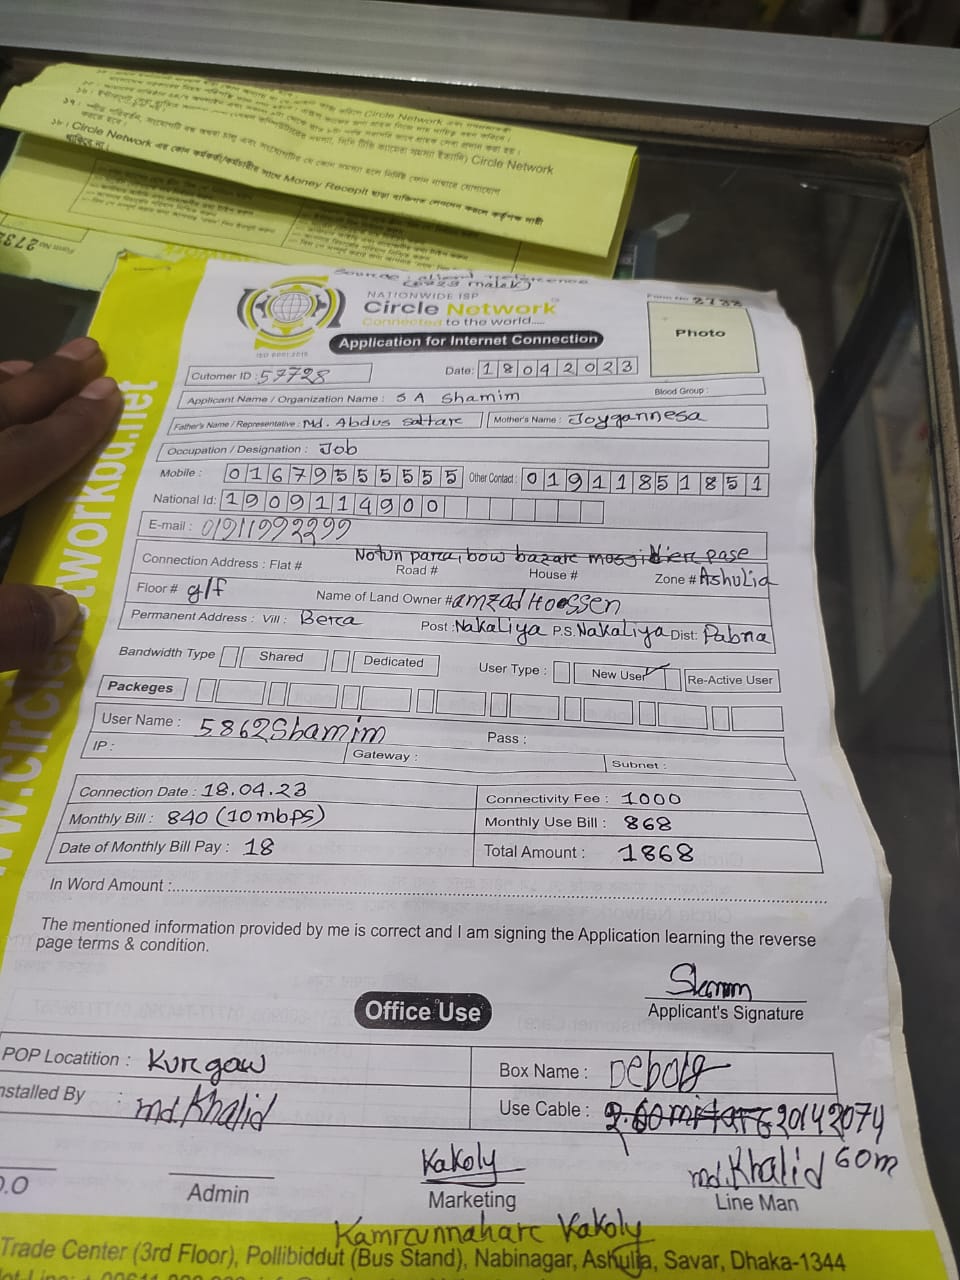 ১৮। Circle Network এর কোন কর্মকর্তা/কর্মচারীর সাথে Money Recepit ছাড়া ব্যক্তিগত লেনদেন করলে কর্তৃপক্ষ দায়ী
থাকিবে না।
Form No 2732
NATIONWIDE ISP
Circle Network
Connected to the world.....
ISO 9001:2015
Application for Internet Connection
Form No 2738
Photo
Cutomer ID : 57728
Date: 18042023
Applicant Name / Organization Name : S A Shamim
Blood Group :
Father's Name / Representative : Md. Abdus Sattare
Mother's Name : Joygannesa
Occupation / Designation : Job
Mobile : 01679555555 Other Contact : 01911851851
National Id: 1909114900
E-mail : 01911992299
Notun para, bow bazare pase
Connection Address : Flat # Road # House # Zone # Ashulia
Floor # g/f Name of Land Owner # amzad Hossen
Permanent Address : Vill : Berca Post : Nakaliya P.S. Nakaliya Dist: Pabna
Bandwidth Type Shared Dedicated User Type : New User Re-Active User
Packeges
User Name : 5862Shamim Pass :
IP : Gateway : Subnet :
Connection Date : 18.04.23 Connectivity Fee : 1000
Monthly Bill : 840 (10mbps) Monthly Use Bill : 868
Date of Monthly Bill Pay : 18 Total Amount : 1868
In Word Amount :
The mentioned information provided by me is correct and I am signing the Application learning the reverse
page terms & condition.
Shamim
Applicant's Signature
Office Use
POP Locatition : Kurgaw Box Name :
nstalled By : md. Khalid Use Cable : 20142074
60m
Kakoly md. Khalid
Admin Marketing Line Man
Kamrunnahare Kakoly
Trade Center (3rd Floor), Pollibiddut (Bus Stand), Nabinagar, Ashulia, Savar, Dhaka-1344